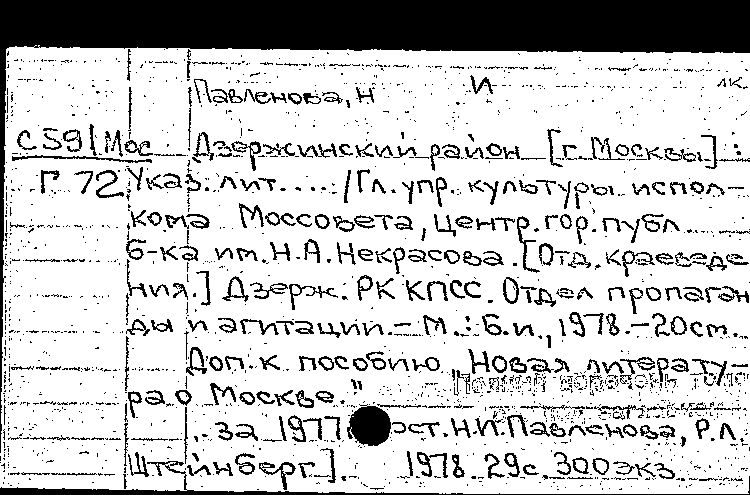 Павленова, Н И лк
С59/Мос Дзержинский район [г. Москвы] :
Г 72 Указ. лит.... : /Гл. упр. культуры испол-
кома Моссовета, Центр. гор. публ.
б-ка им. Н.А. Некрасова. [Отд. краеведе
ния.] Дзерж. РК КПСС. Отдел пропаган
ды и агитации. – М. : Б.и., 1978. – 20 см.
Доп. к пособию „Новая литерату-
ра о Москве."
Полный перечень
.. за 1977 ост. Н.И. Павленова, Р.Л.
Штейнберг]. 1978. 29с. 300экз